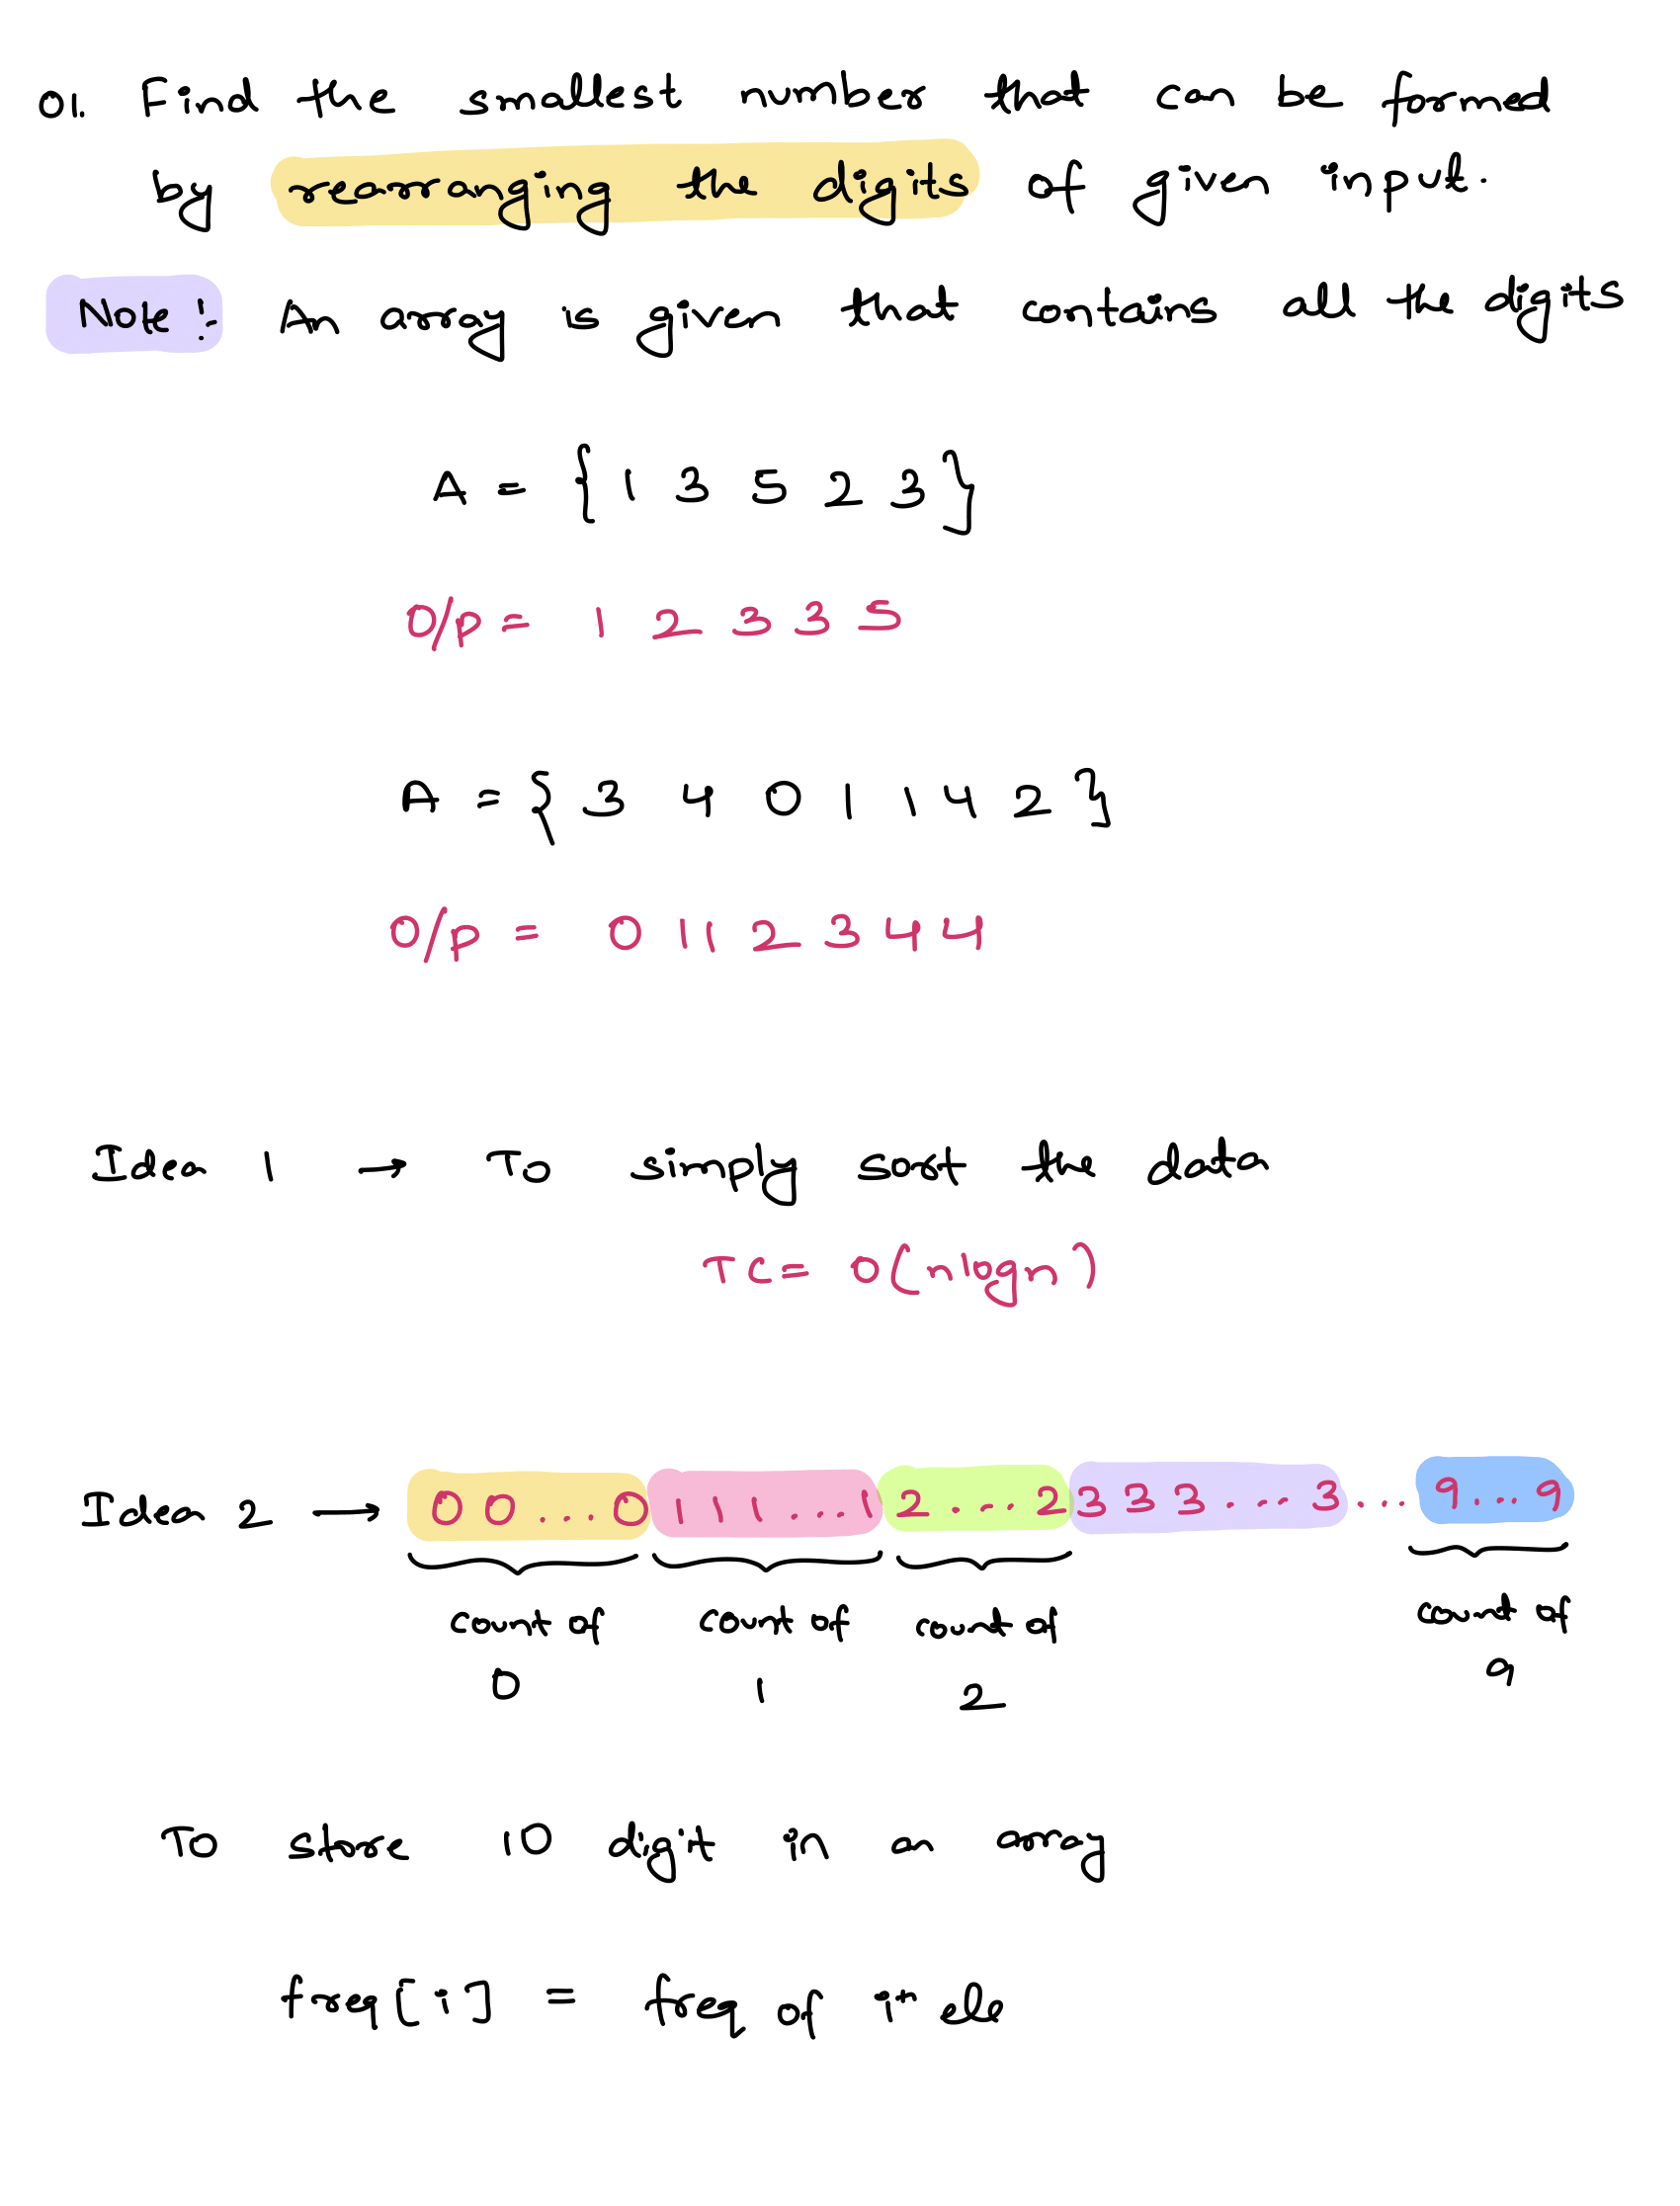 01. Find the smallest number that can be formed
by rearranging the digits of given input.
Note :- An array is given that contains all the digits
A = { 1 3 5 2 3 }
O/p = 1 2 3 3 5
A = { 3 4 0 1 1 4 2 }
O/p = 0 1 1 2 3 4 4
Idea 1 → To simply sort the data
TC = O(nlogn)
Idea 2 → 0 0 ... 0 1 1 1 ... 1 2 ... 2 3 3 3 ... 3 ... 9 ... 9
count of count of count of count of
0 1 2 9
To store 10 digit in an array
freq[i] = freq of ith ele